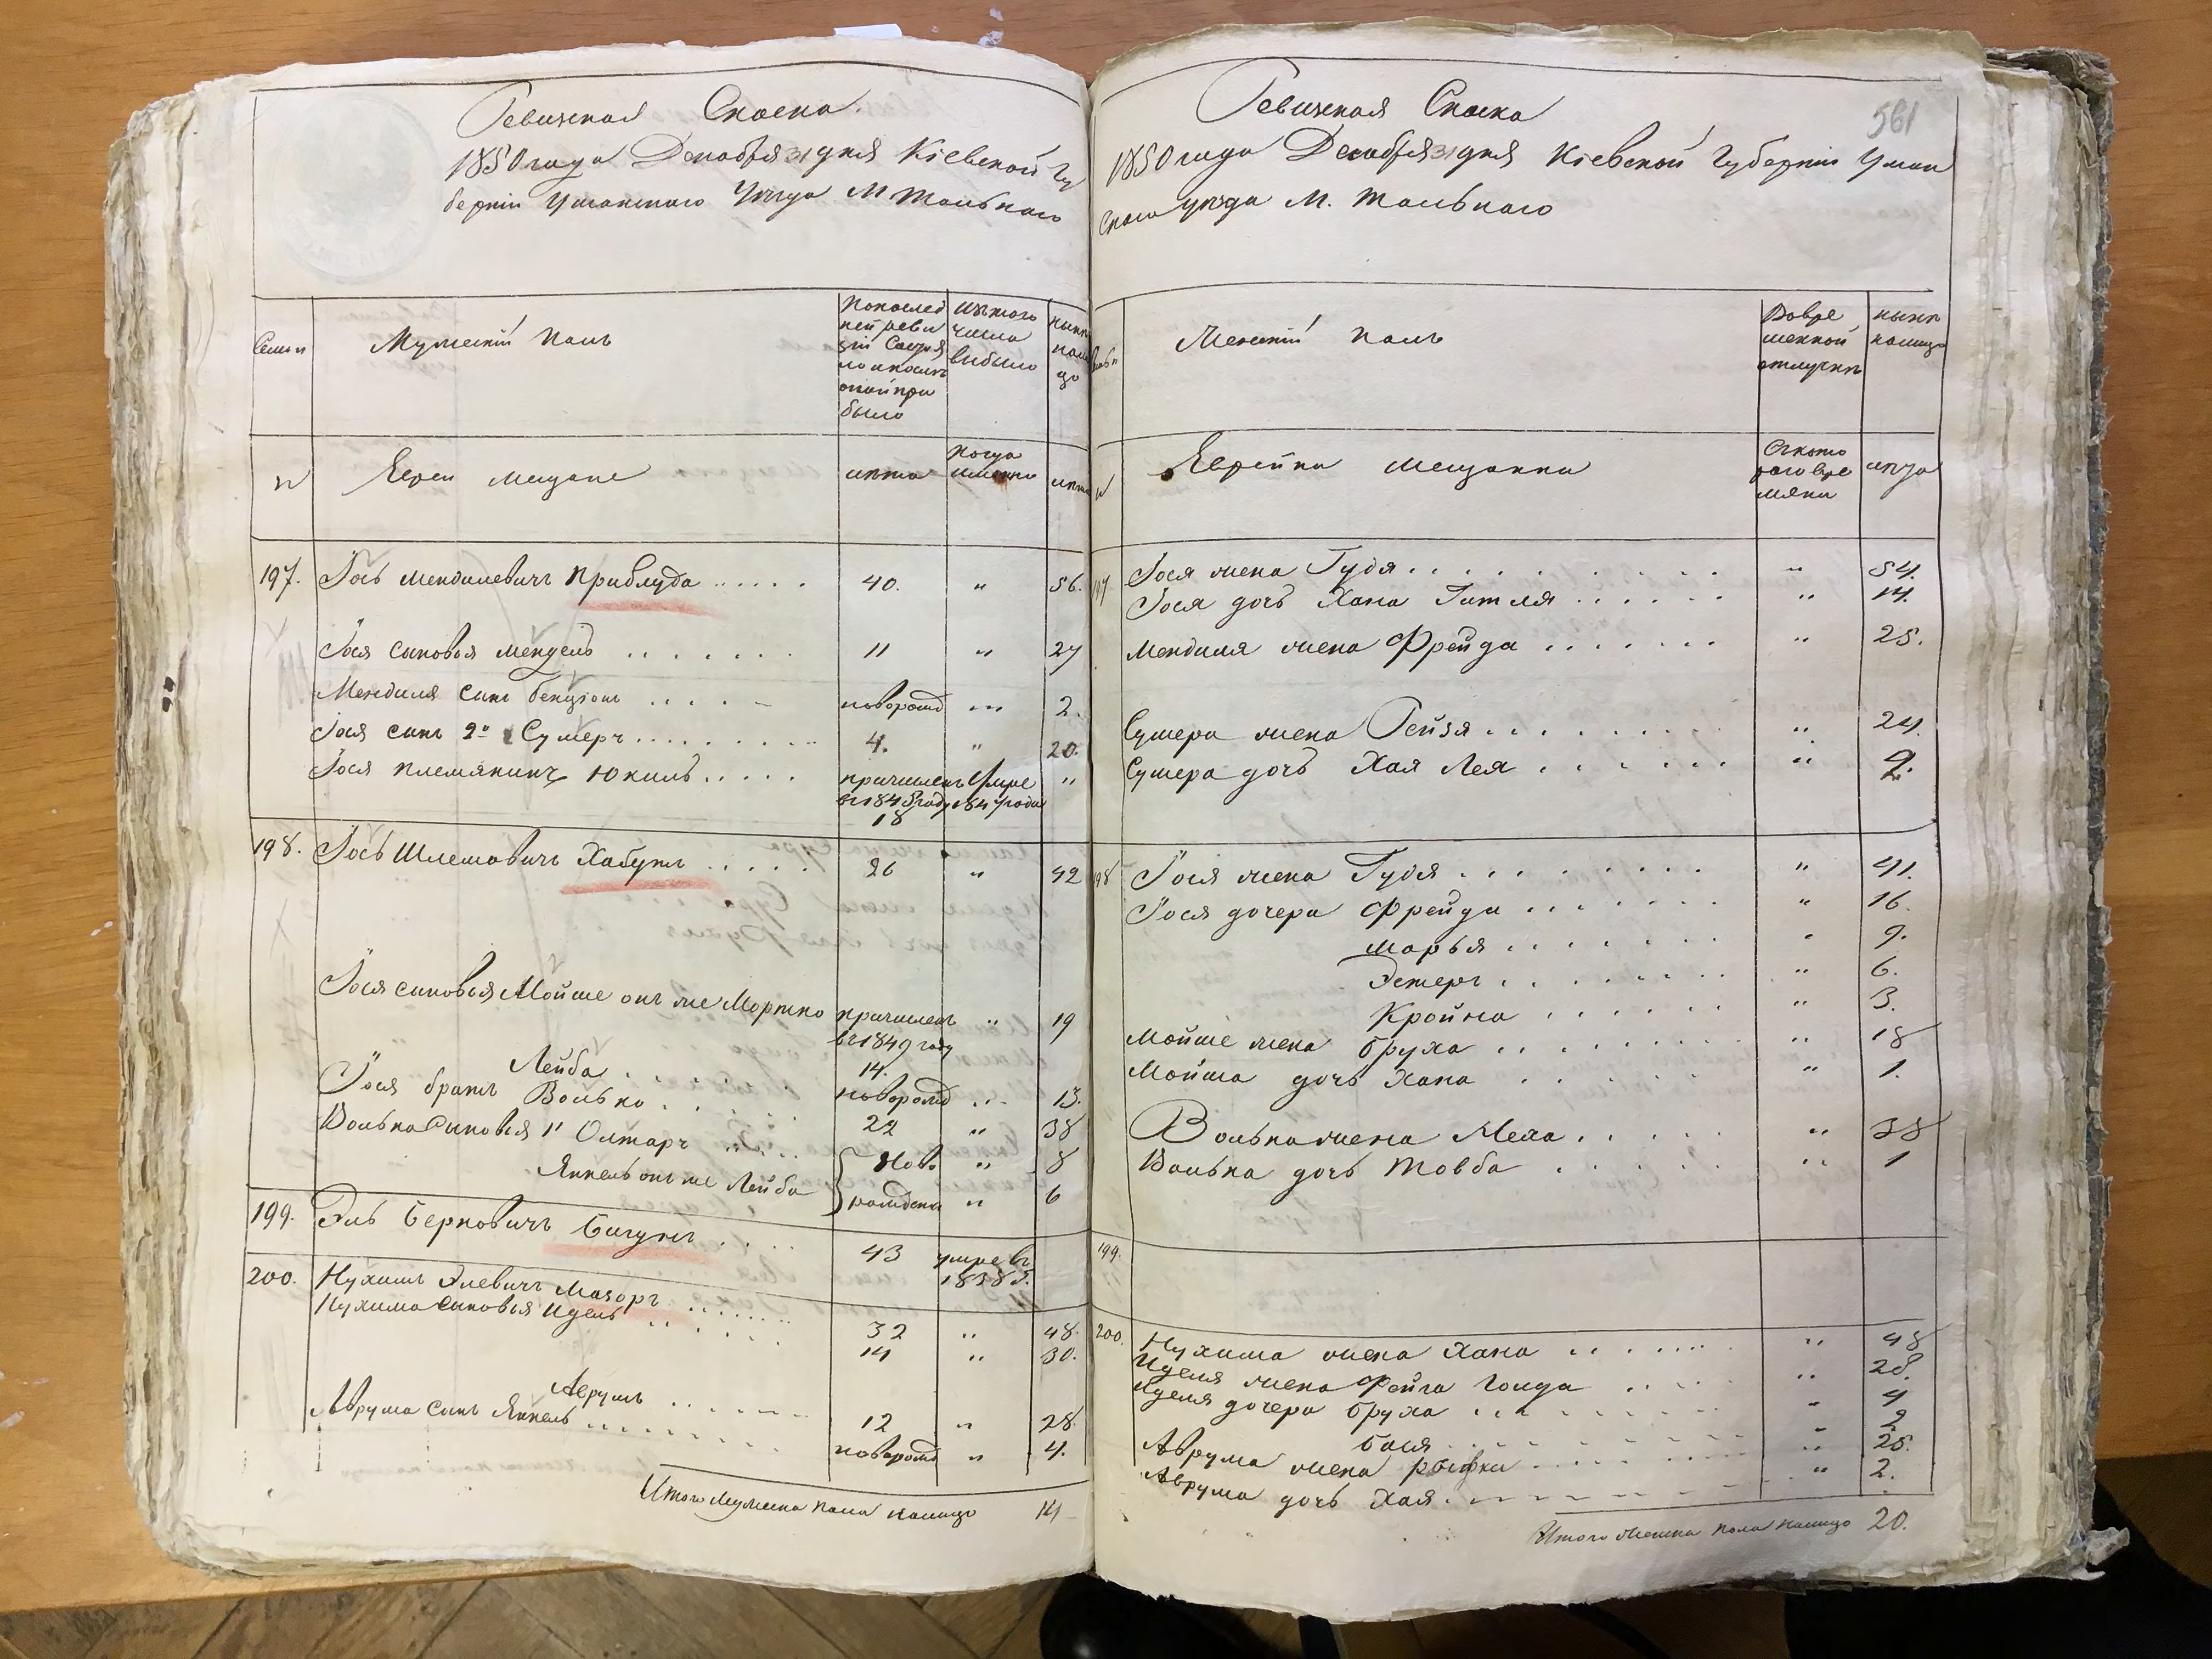 Ревизская Сказка.
1850 года Декабря 31 дня Кіевской Гу
берніи Уманского Уезда М Тального
Семьи
Мужескій полъ
По послед
ней реви
зіи состоя
ло и после
оной при
было
Изъ того
числа
выбыло
ныне
нали
цо
N
Евреи мещане
лета
Когда
именно
лета
197. Іось Мендилевичъ Приблуда 40. " 56.
Іося сыновья Мендель 11 " 27
Мендиля сынъ Бенціонъ новорожд " 2.
Іося сынъ 2й Сумеръ 4. " 20.
Іося племянникъ Юкиль причисленъ Умре "
въ 1845 году 1847 года
18
198. Іось Шлемовичъ Хабунъ 26 " 42
Іося сыновья Мойше онъ же Мортко причисленъ " 19
въ 1849 году
14.
Лейба новорожд " 13.
Іося братъ Волько 22 " 38
Волька сыновья 1й Олтаръ Ново " 8
Янкель онъ же Лейба рождены " 6
199. Эль Берковичъ Бигунъ 43 умре въ
1838 г.
200. Нухимъ Элевичъ Мазоръ 32 " 48.
Нухима сыновья Идель 14 " 30.
Аврумъ 12 " 28.
Аврума сынъ Янкель новорожд " 4.
Итого мужеска пола налицо 14
561
Ревизская Сказка
1850 года Декабря 31 дня Кіевской Губерніи Уман
ского уезда М. Тального
Женскій полъ
Во вре
менной
отлучке
ныне
налицо
N
Еврейки мещанки
Съ кото
раго вре
мяни
лета
197 Іося жена Гудя " 54.
Іося дочь Хана Гитля " 14.
Мендиля жена Фрейда " 25.
Сумера жена Рейзя " 24.
Сумера дочь Хая Лея " 2.
198 Іося жена Гудя " 41.
Іося дочери Фрейда " 16.
Марья " 9.
Эстеръ " 6.
Кройна " 3.
Мойше жена Бруха " 18
Мойша дочь Хана " 1.
Волька жена Меха " 38
Волька дочь Товба " 1
199.
200. Нухима жена Хана " 48
Иделя жена Фейга Голда " 28.
Иделя дочери Бруха " 4
Бася " 2
Аврума жена Рыфка " 25.
Аврума дочь Хая " 2.
Итого женска пола налицо 20.